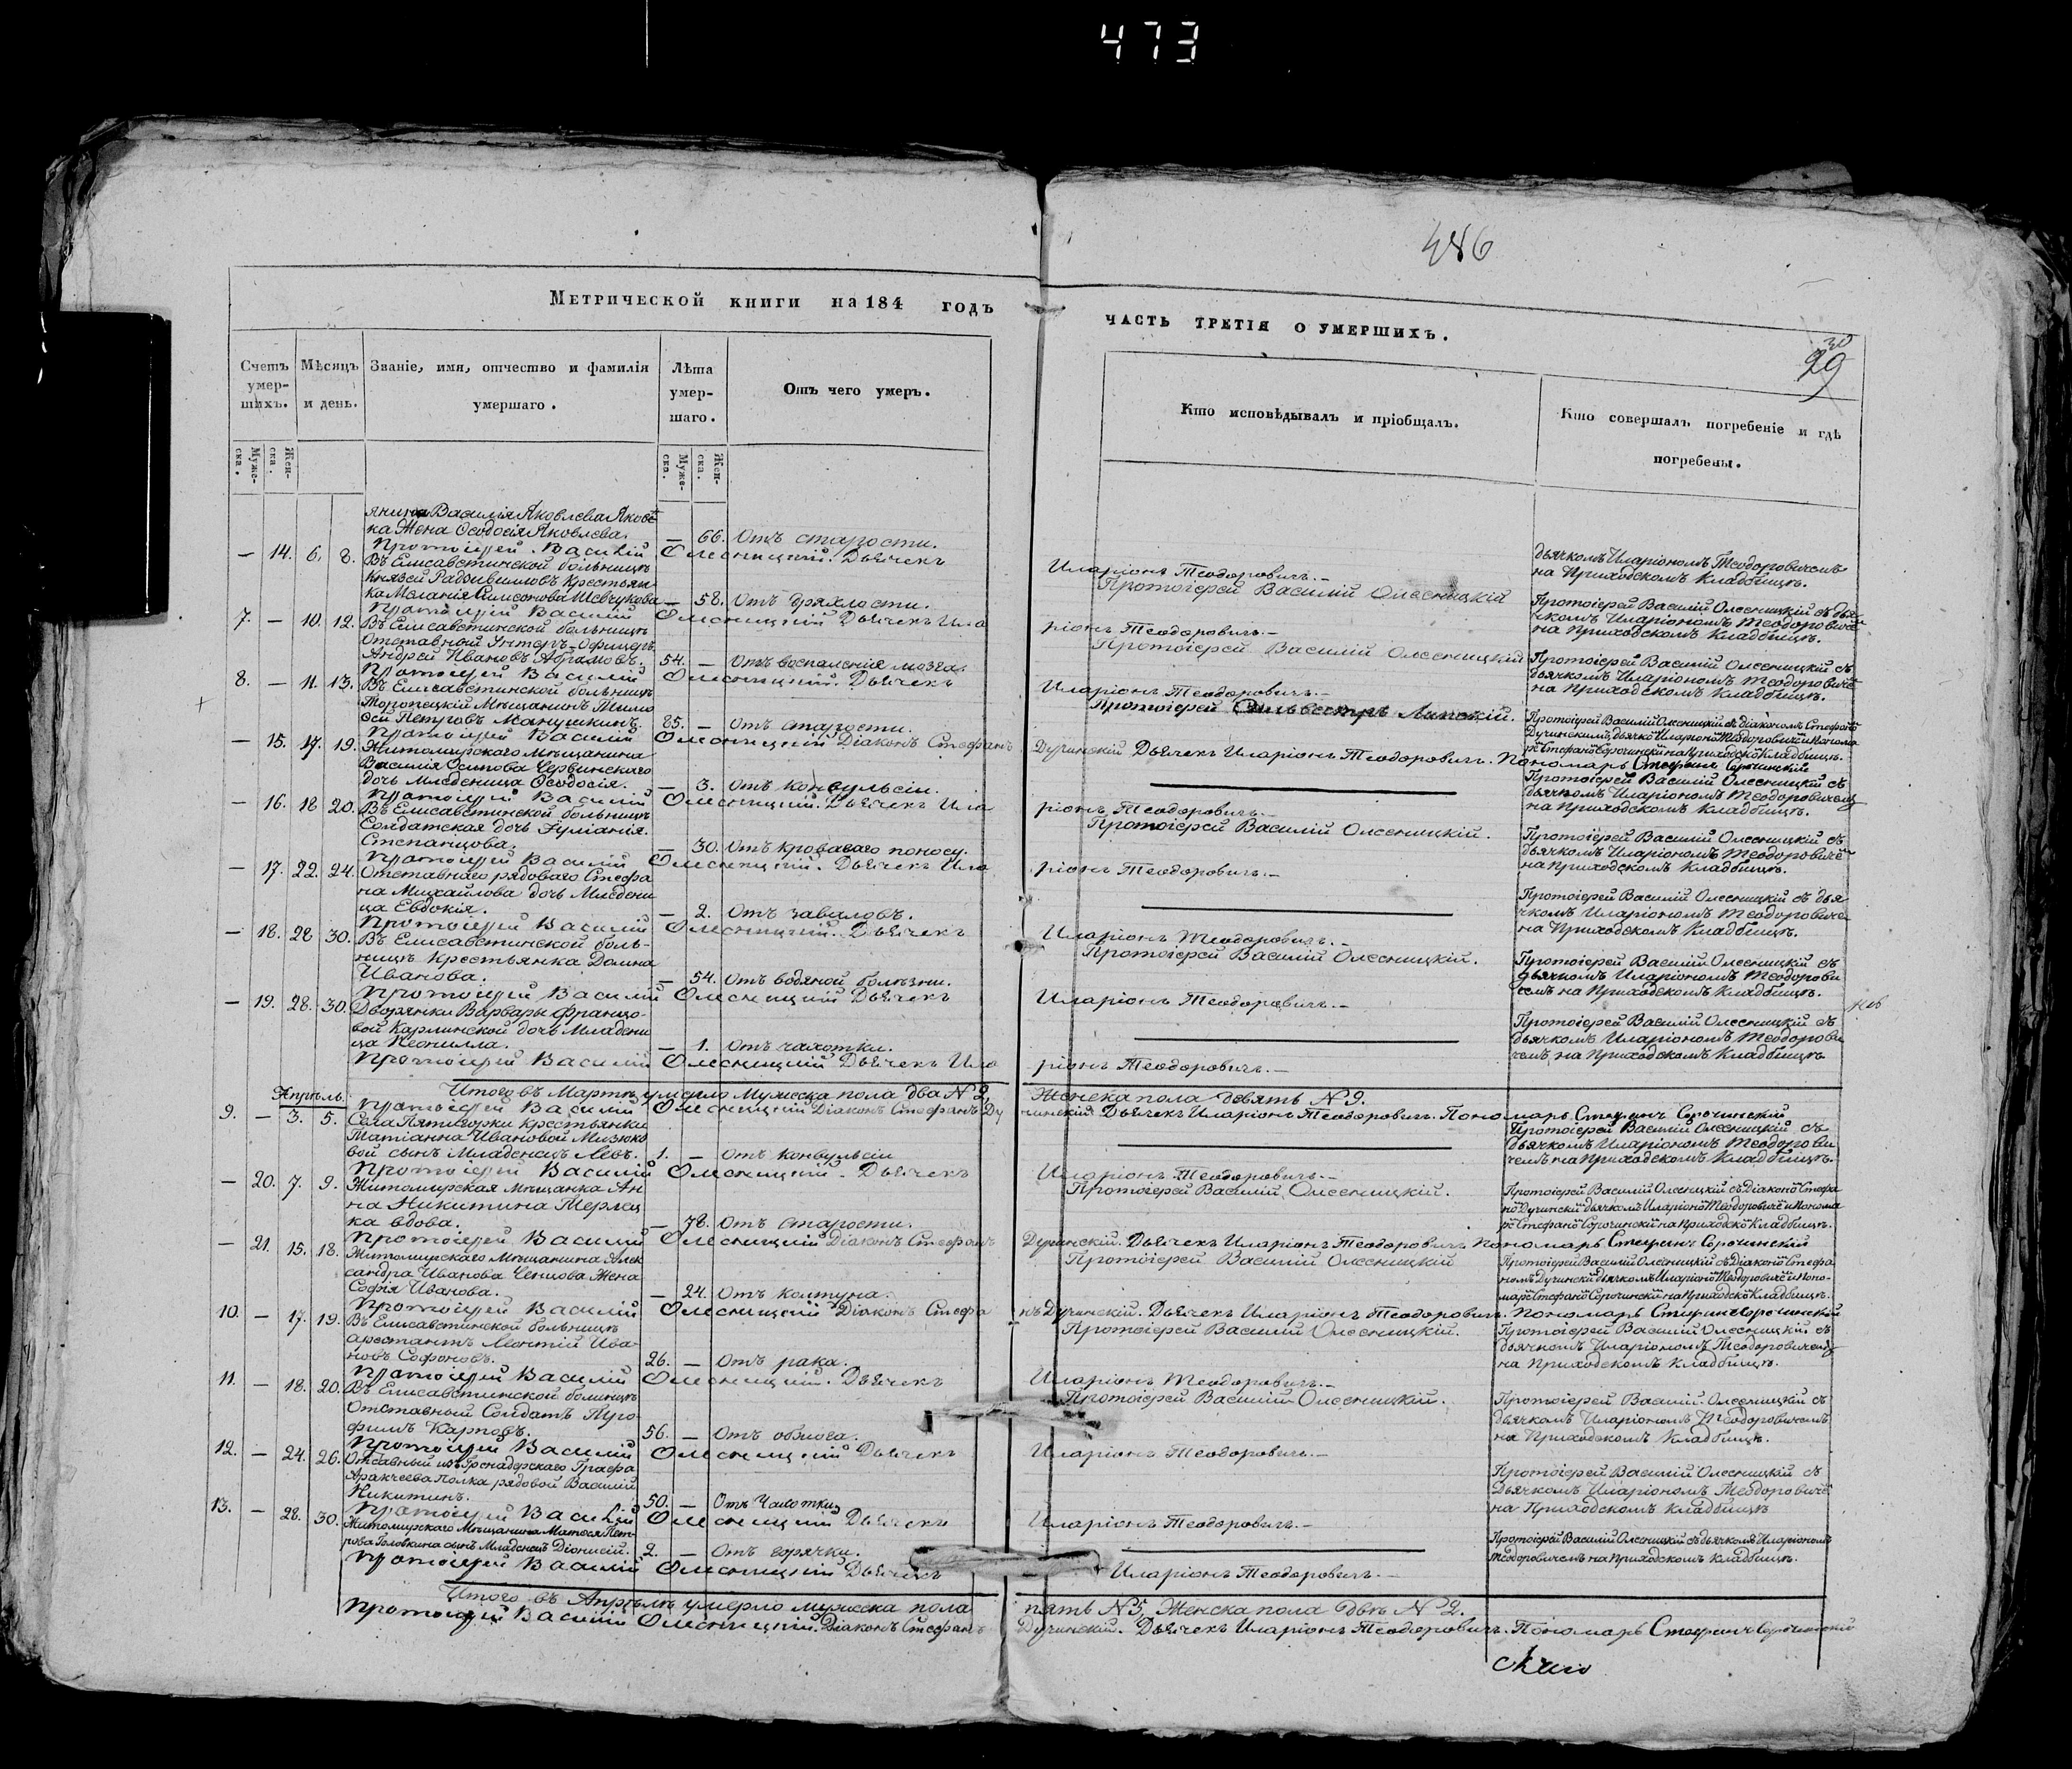 473
486
Метрической книги на 184 годъ
часть третія о умершихъ.
30
29
Счетъ умер-шихъ.
Мѣсяцъ и день.
Званіе, имя, отчество и фамилія умершаго.
Лѣта умер-шаго.
Отъ чего умеръ.
Кто исповѣдывалъ и пріобщалъ.
Кто совершалъ погребеніе и гдѣ погребены.
Муже-ска. Жен-ска.
Муже-ска. Жен-ска.
Василія Яковлева
ка Жена Ѳеодосія Яковлева. — 66. Отъ старости.
дьячкомъ Иларіономъ Теодоровичемъ
на Приходскомъ Кладбищѣ.
Протоіерей Василій Олесницкій. Дьячекъ Иларіонъ Теодоровичъ.–
— 14. 6. 8. Въ Елисаветинской больницѣ
Князей Радзивиловъ Крестьян-
ка Меланія Симеонова Шевчукова — 58. Отъ дряхлости.
Протоіерей Василій Олесницкій
Протоіерей Василій Олесницкій съ дья-
чкомъ Иларіономъ Теодорович
на Приходскомъ Кладбищѣ.
Протоіерей Василій Олесницкій Дьячекъ Ила
ріонъ Теодоровичъ.–
7. — 10. 12. Въ Елисаветинской больницѣ
Отставный Унтеръ-Офицеръ
Андрей Ивановъ Абрамовъ. 54. — Отъ воспаленія мозга.
Протоіерей Василій Олесницкій
Протоіерей Василій Олесницкій съ
дьячкомъ Иларіономъ Теодорович
на Приходскомъ Кладбищѣ.
Протоіерей Василій Олесницкій. Дьячекъ Иларіонъ Теодоровичъ.–
8. — 11. 13. Въ Елисаветинской больницѣ
Торопецкій Мѣщанинъ Тимо
ѳей Петровъ Манушкинъ. 85. — Отъ старости.
Протоіерей Сильвестръ Липскій.
Протоіерей Василій Олесницкій съ діакономъ Стефано
Дучинскимъ, дьячко Иларіоно Теодорович и Понома
ре Стефано Сорочински на Приходско Кладбищѣ.
Протоіерей Василій Олесницкій Діаконъ Стефанъ
Дучинскій Дьячекъ Иларіонъ Теодоровичъ. Пономарь Стефанъ Сорочинскій
— 15. 17. 19. Житомирскаго Мѣщанина
Василія Осипова Червинскаго
дочь младеница Ѳеодосія. — 3. Отъ конвульсіи.
Протоіерей Василій Олесницкій съ
дьячкомъ Иларіономъ Теодоровичемъ
на Приходскомъ Кладбищѣ.
Протоіерей Василій Олесницкій. Дьячекъ Ила
ріонъ Теодоровичъ.–
— 16. 18 20. Въ Елисаветинской больницѣ
Солдатская дочь Іуліанія
Степанцова. — 30. Отъ кроваваго поносу.
Протоіерей Василій Олесницкій.
Протоіерей Василій Олесницкій съ
дьячкомъ Иларіономъ Теодорович
на Приходскомъ Кладбищѣ.
Протоіерей Василій Олесницкій. Дьячекъ Ила
ріонъ Теодоровичъ.–
— 17. 22. 24. Отставнаго рядоваго Стефа
на Михайлова дочь Младени
ца Евдокія. — 2. Отъ заваловъ.
Протоіерей Василій Олесницкій съ дья
чкомъ Иларіономъ Теодорович
на Приходскомъ Кладбищѣ.
Протоіерей Василій Олесницкій. Дьячекъ Иларіонъ Теодоровичъ.–
— 18. 28 30. Въ Елисаветинской боль-
ницѣ Крестьянка Домна
Иванова. — 54. Отъ водяной болѣзни.
Протоіерей Василій Олесницкій.
Протоіерей Василій Олесницкій съ
дьячкомъ Иларіономъ Теодорови
чемъ на Приходскомъ Кладбищѣ.
Протоіерей Василій Олесницкій Дьячекъ Иларіонъ Теодоровичъ.–
— 19. 28. 30. Дворянки Варвары Францо-
вой Карлинской дочь Младени
ца — 1. Отъ чахотки.
Протоіерей Василій Олесницкій съ
дьячкомъ Иларіономъ Теодорови
чемъ, на Приходскомъ Кладбищѣ
Протоіерей Василій Олесницкій Дьячекъ Ила
ріонъ Теодоровичъ.–
Итого въ Мартѣ умерло Мужеска пола два N 2, Женска пола девять N 9.
Апрѣль.
Протоіерей Василій Олесницкій Діаконъ Стефанъ Ду
чинскій Дьячекъ Иларіонъ Теодоровичъ. Пономарь Стефанъ Сорочинскій
9. — 3. 5. Села Пятигорки Крестьянки
Татіанна Ивановой Мизюко
вой сынъ Младенецъ Левъ. 1. — Отъ конвульсіи
Протоіерей Василій Олесницкій съ
дьячкомъ Иларіономъ Теодорови
чемъ на Приходскомъ Кладбищѣ.
Протоіерей Василій Олесницкій. Дьячекъ Иларіонъ Теодоровичъ.–
— 20. 7. 9. Житомирская Мѣщанка Ан
на Никитина Терлец
ка вдова. — 78. Отъ старости.
Протоіерей Василій Олесницкій.
Протоіерей Василій Олесницкій съ Діакono Стефа
но Дучински дьячкомъ Иларіоно Теодорович и Понома
ре Стефано Сорочински на Приходско Кладбищѣ.
Протоіерей Василій Олесницкій Діаконъ Стефанъ
Дучинскій. Дьячекъ Иларіонъ Теодоровичъ Пономарь Стефанъ Сорочинскій
— 21. 15. 18. Житомирскаго Мѣщанина Алек
сандра Иванова Ченцова Жена
Софія Иванова. — 24. Отъ колтуна.
Протоіерей Василій Олесницкій
Протоіерей Василій Олесницкій съ Діаконо Стефа
номъ Дучински дьячкомъ Иларіоно Теодорович и Поно-
маре Стефано Сорочински на Приходско Кладбищѣ.
Протоіерей Василій Олесницкій Діаконъ Стефа
нъ Дучинскій. Дьячекъ Иларіонъ Теодоровичъ. Пономарь Стефанъ Сорочинскій
10. — 17. 19. Въ Елисаветинской больницѣ
арестантъ Леонтій Ива-
новъ Софоновъ. 26. — Отъ рака.
Протоіерей Василій Олесницкій.
Протоіерей Василій Олесницкій съ
дьячкомъ Иларіономъ Теодоровичемъ
на Приходскомъ Кладбищѣ.
Протоіерей Василій Олесницкій. Дьячекъ Иларіонъ Теодоровичъ.–
11. — 18. 20. Въ Елисаветинской больницѣ
Отставный Солдатъ
филъ Карповъ. 56. —
Протоіерей Василій Олесницкій.
Протоіерей Василій Олесницкій съ
дьячкомъ Иларіономъ Теодоровичемъ
на Приходскомъ Кладбищѣ.
Протоіерей Василій Олесницкій Дьячекъ Иларіонъ Теодоровичъ.–
12. — 24. 26. Отставный изъ Гренадерскаго Графа
Аракчеева полка рядовой Василій
Никитинъ. 50. — Отъ Чахотки
Протоіерей Василій Олесницкій съ
Дьячкомъ Иларіономъ Теодорович
на Приходскомъ Кладбищѣ
Протоіерей Василій Олесницкій Дьячекъ Иларіонъ Теодоровичъ.–
13. — 28. 30. Житомирскаго Мѣщанина Матвея Пет-
рова Головкина сынъ Младенецъ Діонисій. 2. — Отъ горячки.
Протоіерей Василій Олесницкій съ дьячкомъ Иларіономъ
Теодоровичемъ на Приходскомъ Кладбищѣ.
Протоіерей Василій Олесницкій Дьячекъ Иларіонъ Теодоровичъ.–
Итого въ Апрѣлѣ умерло мужеска пола пять N 5, Женска пола двѣ N 2.
Протоіерей Василій Олесницкій. Діаконъ Стефанъ Дучинскій. Дьячекъ Иларіонъ Теодоровичъ. Пономарь Стефанъ Сорочинскій